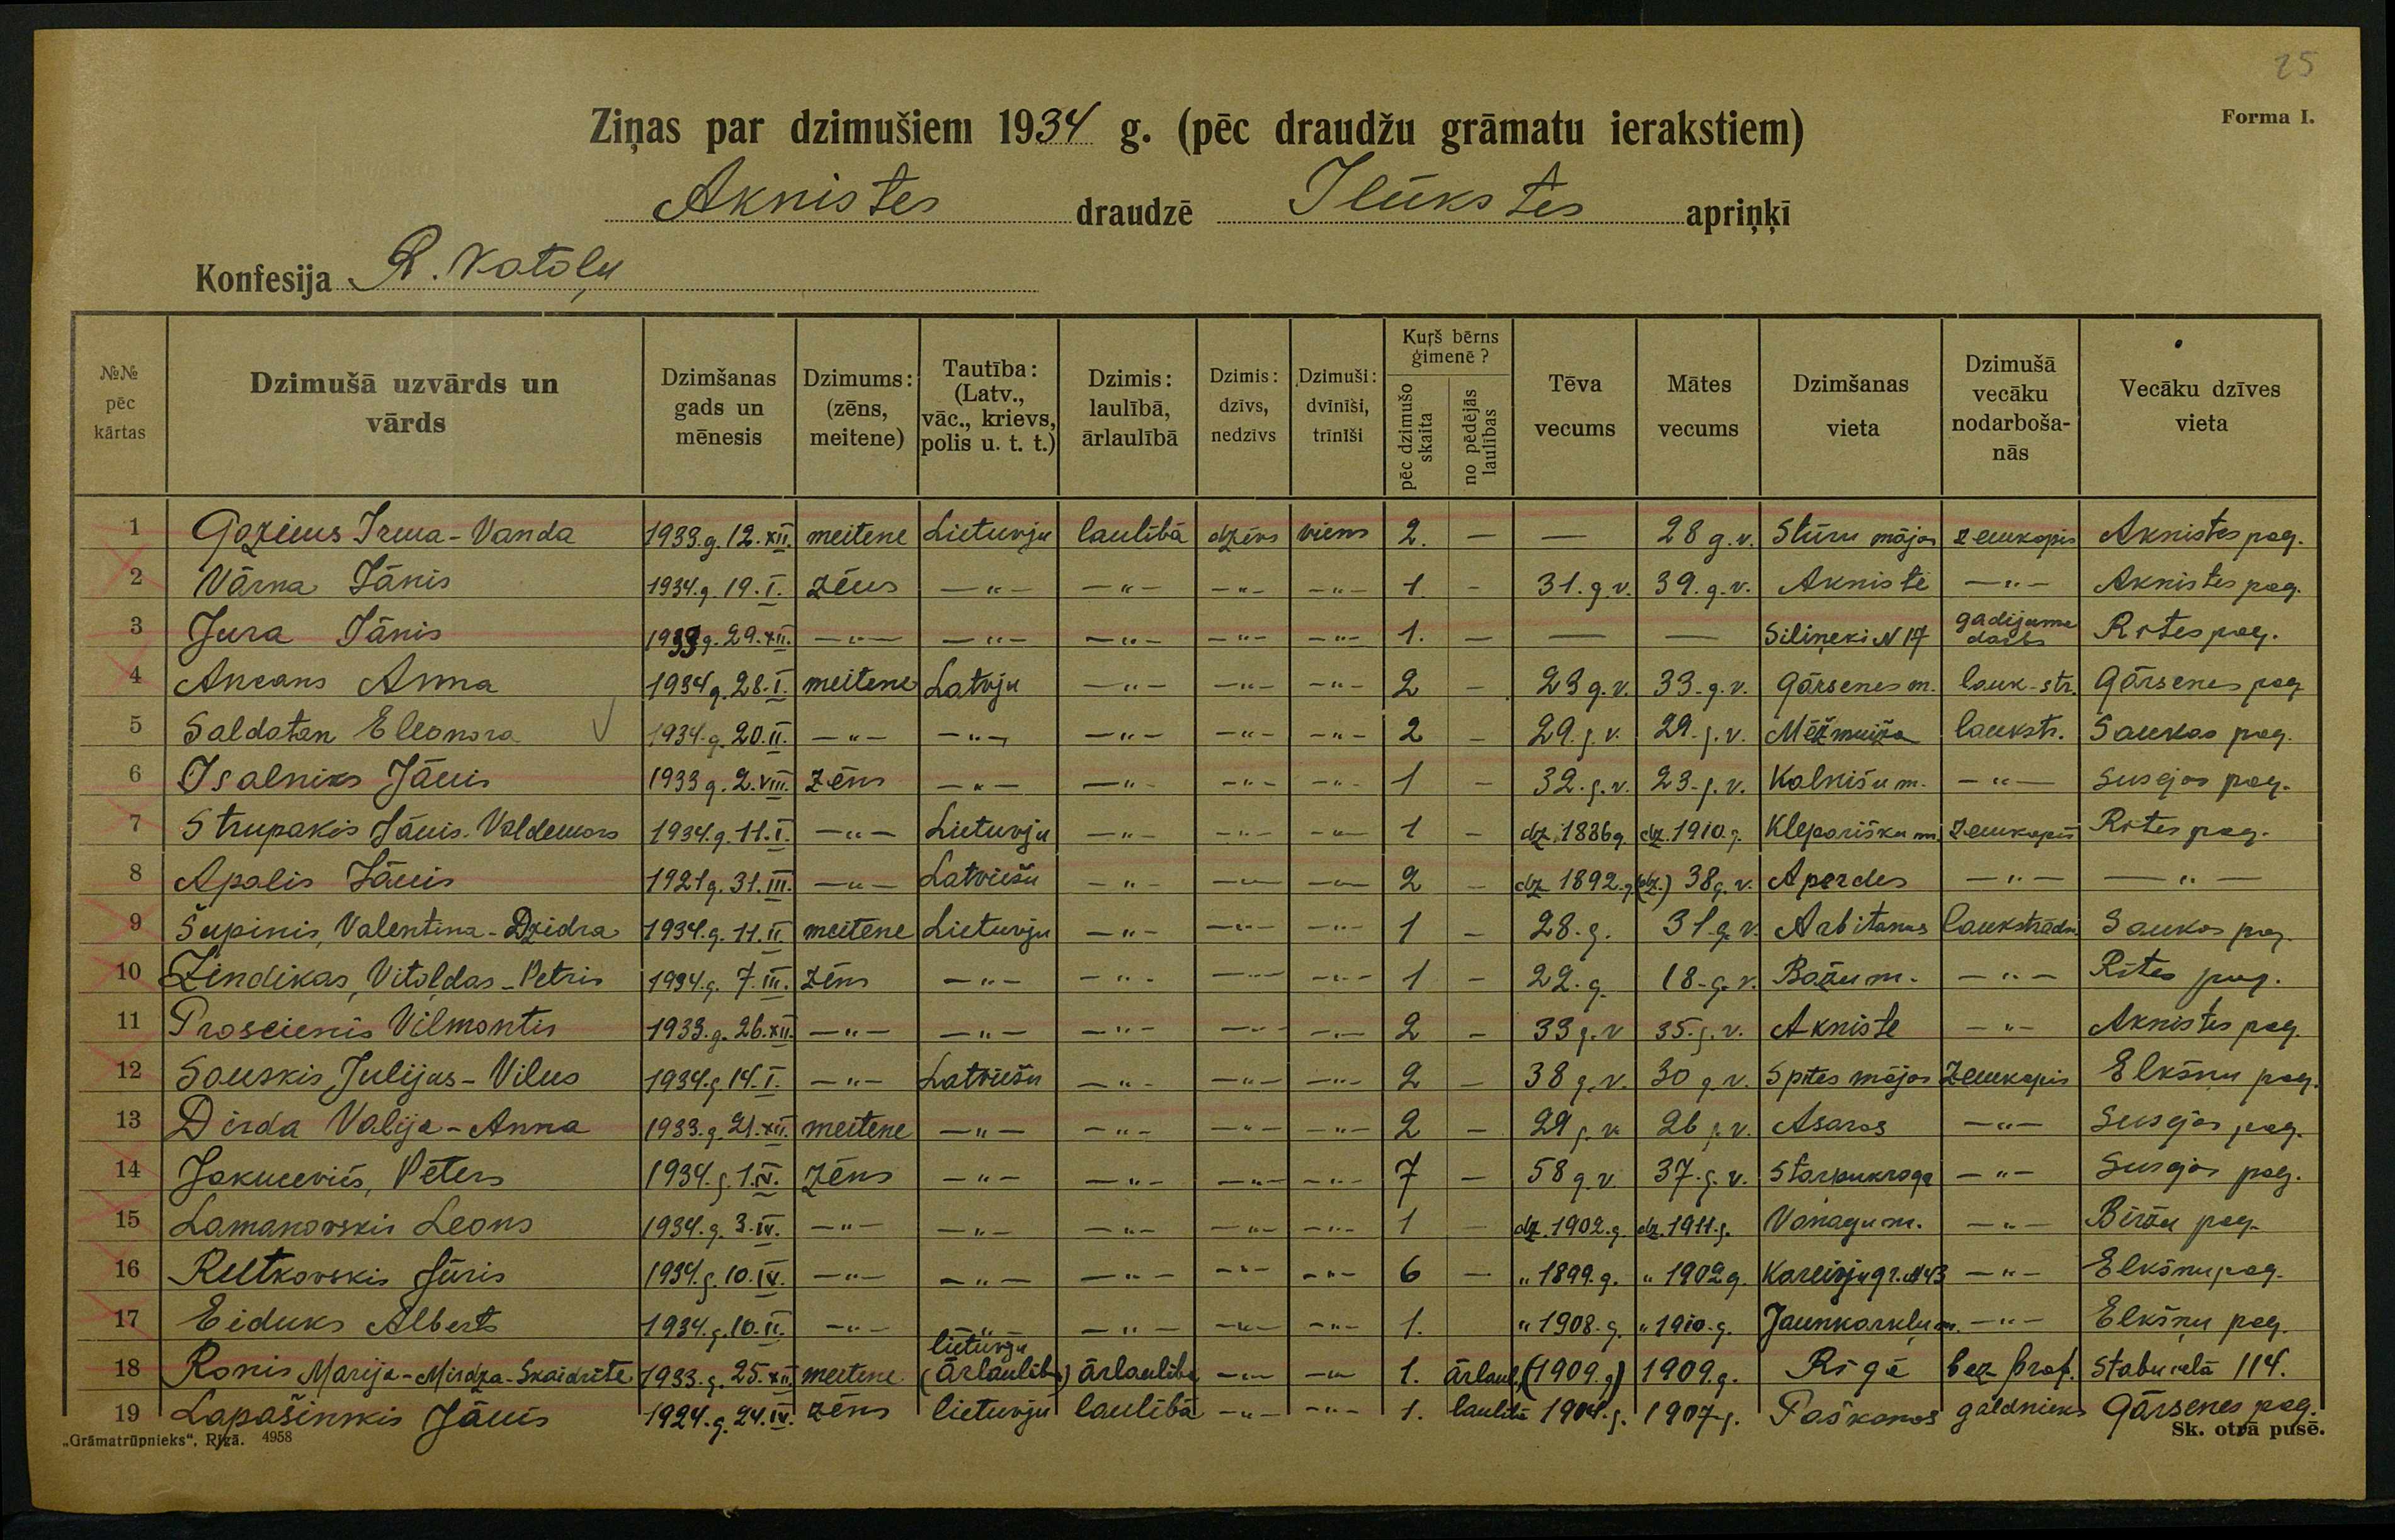 25
Forma I.
Ziņas par dzimušiem 1934 g. (pēc draudžu grāmatu ierakstiem)
Aknistes draudzē Ilūkstes apriņķī
Konfesija R. Katoļu
№№ pēc kārtas | Dzimušā uzvārds un vārds | Dzimšanas gads un mēnesis | Dzimums: (zēns, meitene) | Tautība: (Latv., vāc., krievs, polis u. t. t.) | Dzimis: laulībā, ārlaulībā | Dzimis: dzīvs, nedzīvs | Dzimuši: dvīnīši, trīnīši | Kuŗš bērns ģimenē? pēc dzimušo skaita | no pēdējās laulības | Tēva vecums | Mātes vecums | Dzimšanas vieta | Dzimušā vecāku nodarbošanās | Vecāku dzīves vieta
1 Gozieus Irma-Vanda 1933.g. 12.XII. meitene Lietuvju laulībā dzīvs viens 2. — — 28 g.v. Stūru mājas zemkopis Aknistes pag.
2 Vārna Jānis 1934.g. 19.I. zēns —"— —"— —"— —"— 1. — 31.g.v. 39.g.v. Akniste —"— Aknistes pag.
3 Jura Jānis 1933g. 29.XII. —"— —"— —"— —"— —"— 1. — — — Siliņeki N 17 gadijuma darbs Rites pag.
4 Ancans Anna 1934g. 28.I. meitene Latvju —"— —"— —"— 2 — 23 g.v. 33.g.v. Gārsenes m. lauk-str. Gārsenes pag
5 Saldatan Eleonora 1934.g. 20.II. —"— —"— —"— —"— —"— 2 — 29.g.v. 29.g.v. Mēžmuiža laukstr. Saukas pag.
6 Isalniks Jānis 1933 g. 2.VIII. zēns —"— —"— —"— —"— 1 — 32.g.v. 23.g.v. Kalnišu m. —"— Susejas pag.
7 Strupakis Jānis-Valdemars 1934.g. 11.I. —"— Lietuvju —"— —"— —"— 1 — dz. 1886g. dz. 1910.g. Kleparišku m. Zemkopis Rites pag.
8 Apalis Jānis 1921g. 31.III. —"— Latviešu —"— —"— —"— 2 — dz 1892.g. (dz.) 38g.v. Aperdes —"— —"—
9 Šupinis, Valentina-Dzidra 1934.g. 11.II. meitene Lietuvju —"— —"— —"— 1 — 28.g. 31.g.v. Arbitanus laukstrādn. Saukas pag.
10 Zindikas, Vitoldas-Petris 1934.g. 7.III. zēns —"— —"— —"— —"— 1 — 22.g. 18.g.v. Bažu m. —"— Rites pag.
11 Proscienis Vilmontis 1933.g. 26.XII. —"— —"— —"— —"— —"— 2 — 33 g.v 35.g.v. Akniste —"— Aknistes pag.
12 Sauskis, Julijas-Vilus 1934.g. 14.I. —"— Latviešu —"— —"— —"— 2 — 38 g.v. 30 g.v. Spītes mājas Zemkopis Elkšņu pag.
13 Dirda Valija-Anna 1933.g. 21.XII. meitene —"— —"— —"— —"— 2 — 29 g.v. 26 g.v. Asaros —"— Susejas pag.
14 Jakucevičs, Pēters 1934.g. 1.IV. zēns —"— —"— —"— —"— 7 — 58 g.v. 37.g.v. Starpukroga —"— Susejas pag.
15 Lamanovskis Leons 1934.g. 3.IV. —"— —"— —"— —"— —"— 1 — dz. 1902.g. dz. 1911.g. Vanagu m. —"— Biržu pag.
16 Rutkovskis Jūris 1934.g. 10.IV. —"— —"— —"— —"— —"— 6 — " 1899.g. " 1902g. Kareivju gr. N43 —"— Elkšņu pag.
17 Eiduks Alberts 1934.g. 10.II. —"— —"— —"— —"— —"— 1. " 1908.g. " 1910.g. Jaunkarkļu m. —"— Elkšņu pag.
18 Ronis Marija-Mirdza-Skaidrīte 1933.g. 25.XII. meitene lietuvju (Ārlaulība) ārlaulībā —"— —"— 1. ārlaul. (1909.g) 1909.g. Rīgā bez prof. Stabu ielā 114.
19 Lapašinskis Jānis 1924.g. 24.IV. zēns lietuvju laulībā —"— —"— 1. laulībā 1904.g. 1907.g. Paškanos galdnieks Gārsenes pag.
„Grāmatrūpnieks", Rīgā. 4958
Sk. otrā pusē.